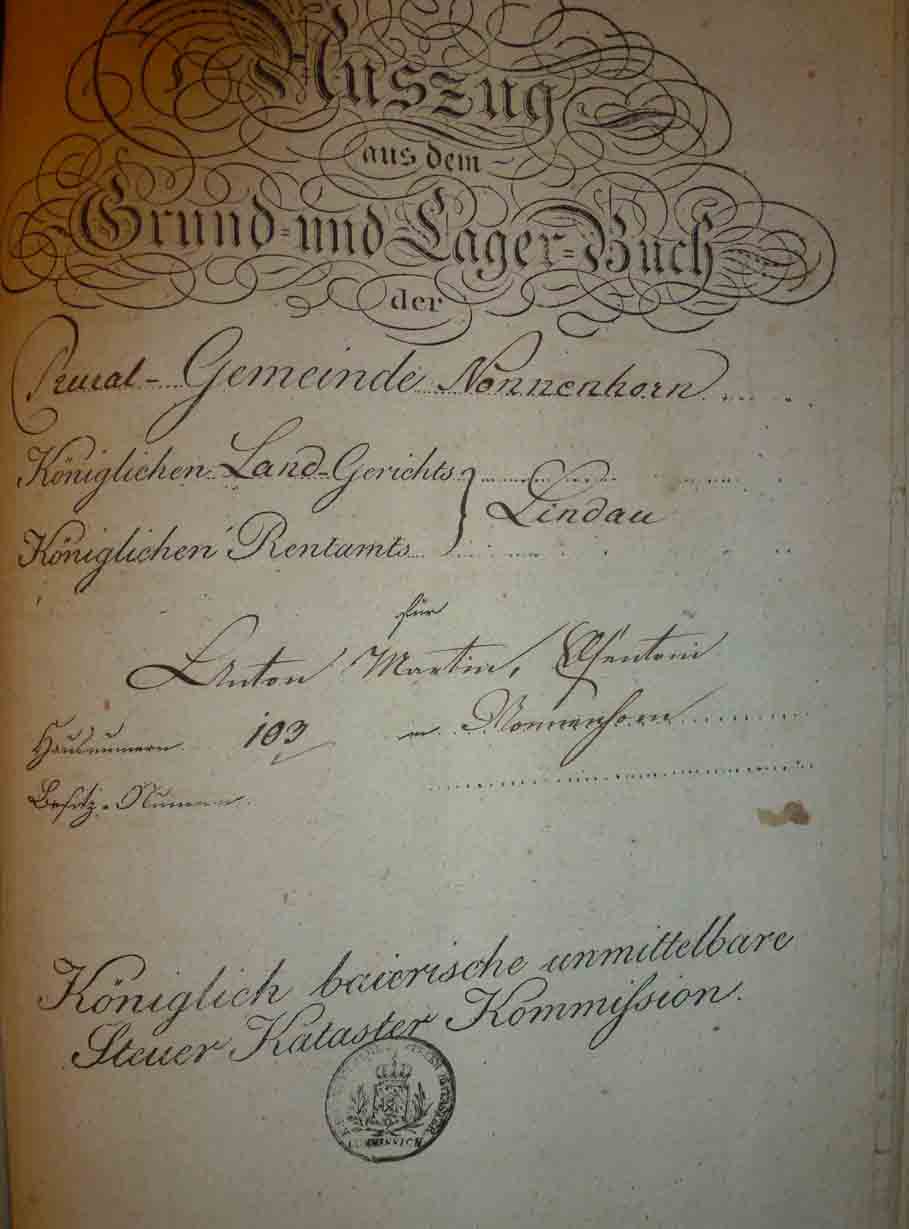 Auszug
aus dem
Grund- und Lager-Buch
der
Rural-Gemeinde Nonnenhorn
Königlichen Land-Gerichts
Lindau
Königlichen Rentamts
für
Anton Martin,
Hausnummern 103 in Nonnenhorn
Besitz-Nummern
Königlich baierische unmittelbare
Steuer Kataster Kommission.